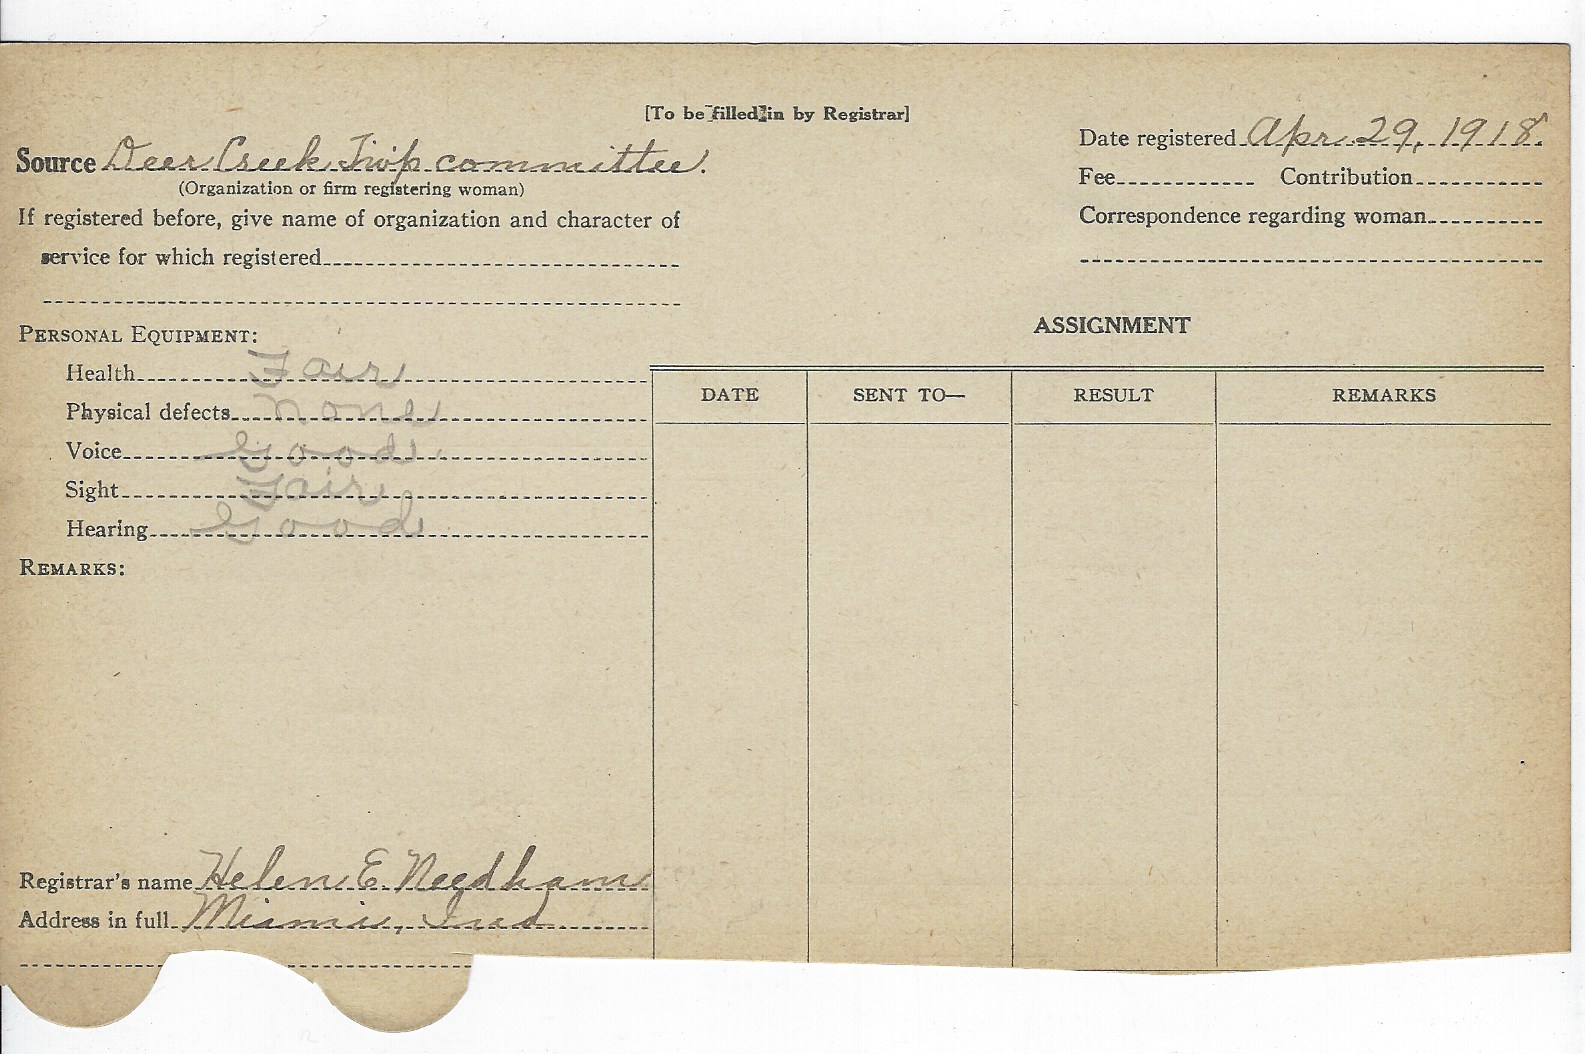 [To be filled in by Registrar]
Source Deer Creek Twp committee.
(Organization or firm registering woman)
If registered before, give name of organization and character of
service for which registered
Date registered Apr. 29, 1918.
Fee Contribution
Correspondence regarding woman
PERSONAL EQUIPMENT:
Health Fair
Physical defects none
Voice Good
Sight Fair
Hearing Good
REMARKS:
Registrar's name Helen E. Needham
Address in full Miami, Ind
ASSIGNMENT
DATE SENT TO— RESULT REMARKS